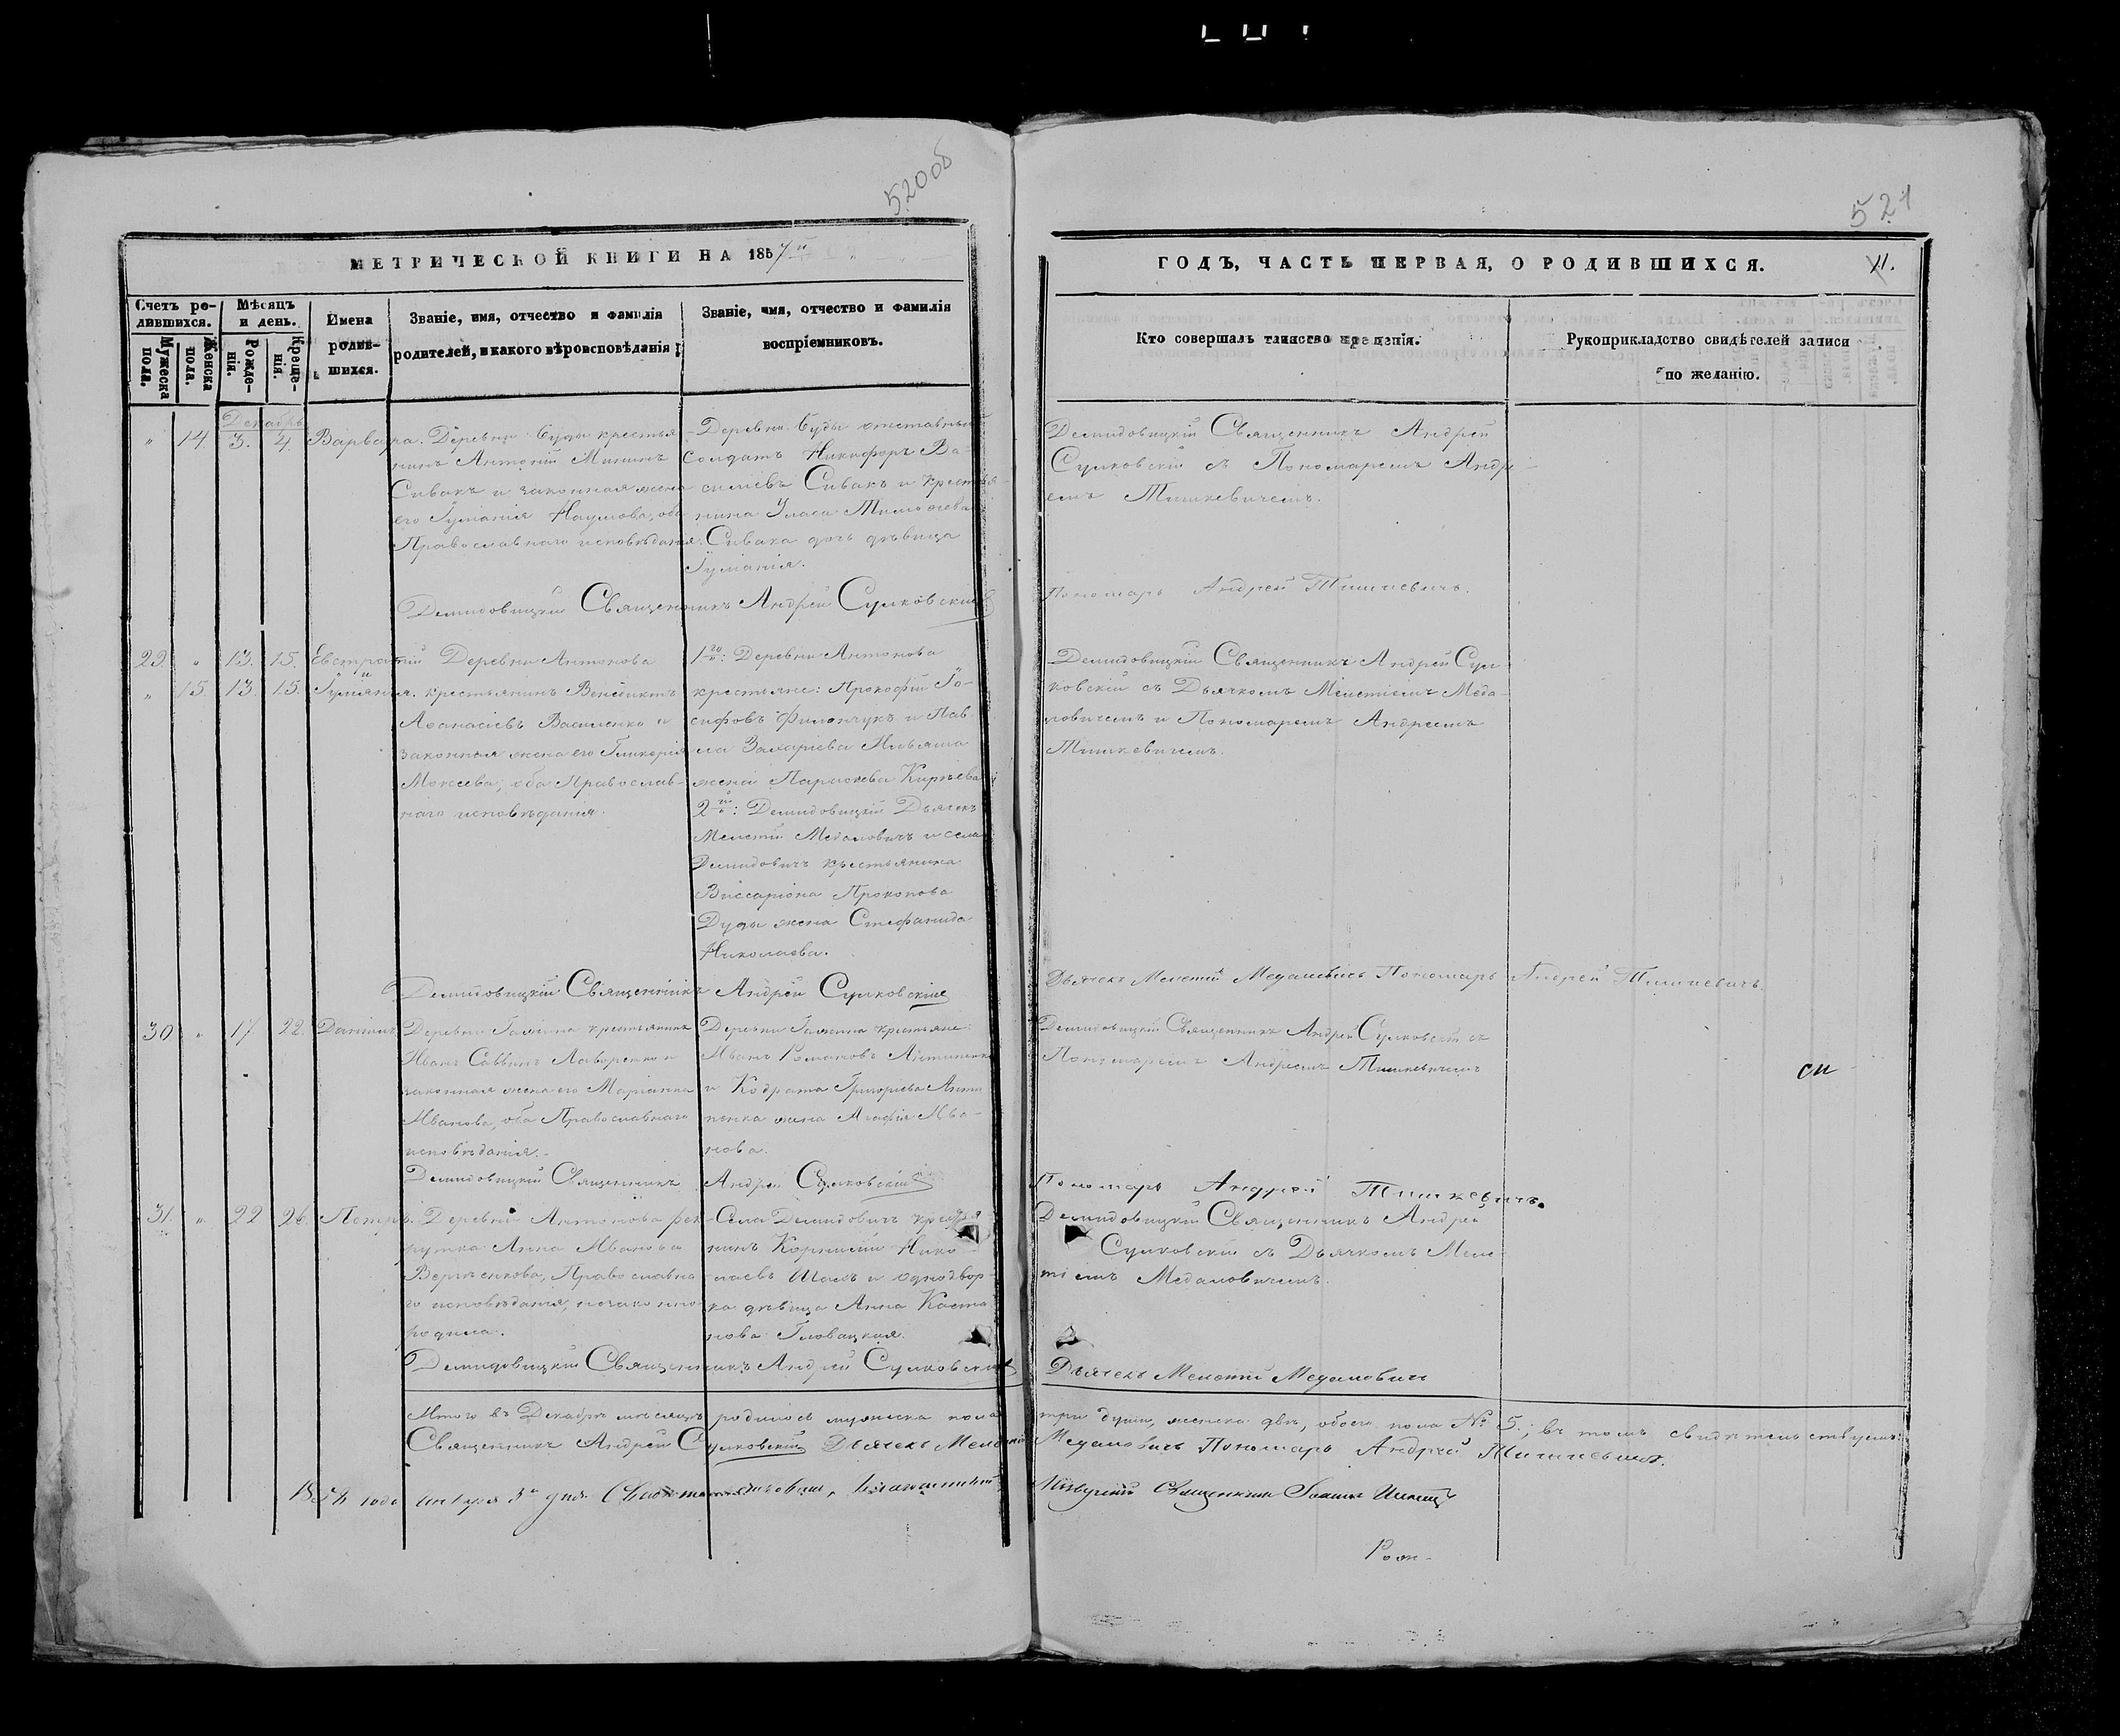 520об
МЕТРИЧЕСКОЙ КНИГИ НА 1857й
Счетъ родившихся.
Мужеска пола.
Женска пола.
Мѣсяцъ и день.
Рожденія.
Крещенія.
Имена родившихся.
Званіе, имя, отчество и фамилія родителей, и какого вѣроисповѣданія
Званіе, имя, отчество и фамилія воспріемниковъ.
Декабрь
" 14 3. 4. Варвара.
Деревни Буды крестья-
нинъ Антоній Мининъ
Сивакъ и законная жена
его Гуліанія Наумова, оба
Православнаго исповѣданія.
Деревни Буды отставный
солдатъ Никифоръ Ва-
сильевъ Сивакъ и крестья-
нина Уласа Тимоѳеева
Сивака дочь дѣвица
Гуліанія.
Демидовицкій Священникъ Андрей Сулковскій
29. " 13. 15. Евстратій
" 15. 13. 15. Гуліянія.
Деревни Антонова
крестьянинъ Венедиктъ
Аѳанасіевъ Василенко и
законная жена его Гликерія
Моисеева, оба Православ-
наго исповѣданія.
1го: Деревни Антонова
крестьяне: Прокофій Іо-
сифовъ Филончукъ и Пав-
ла Захаріева
жена Параскева
2й: Демидовицкій Дьячекъ
Мелетій Медаловичъ и села
Демидовичъ крестьянина
Виссаріона Прокопова
Дуды жена Стефанида
Николаева.
Демидовицкій Священникъ Андрей Сулковскій
30 " 17 22. Даніилъ
Деревни крестьянинъ
Иванъ Саввинъ Лавренко и
законная жена его Маріанна
Иванова, оба Православнаго
исповѣданія.
Деревни крестьяне:
Иванъ Романовъ Антипенко
и Кодрата Григорьева Анти-
пенка жена Агафія Ива-
нова.
Демидовицкій Священникъ Андрей Сулковскій
31. " 22 26. Петръ.
Деревни Антонова рек-
рутка Анна Иванова
Православна-
го исповѣданія, незаконно
родила.
Села Демидовичъ крестья-
нинъ Корнилій Нико-
лаевъ и однодвор-
ка дѣвица Анна
Гловацкая.
Демидовицкій Священникъ Андрей Сулковскій
Итого въ Декабрѣ мѣсяцѣ родилось мужеска пола
Священникъ Андрей Сулковскій Дьячекъ Мелетій
1858 года Января 3го дня
521
ГОДЪ, ЧАСТЬ ПЕРВАЯ, О РОДИВШИХСЯ.
11.
Кто совершалъ таинство крещенія.
Рукоприкладство свидѣтелей записи по желанію.
Демидовицкій Священникъ Андрей
Сулковскій съ Пономаремъ Андре-
емъ Тишкевичемъ.
Пономарь Андрей Тишкевичъ.
Демидовицкій Священникъ Андрей Сул-
ковскій съ Дьячкомъ Мелетіемъ Меда-
ловичемъ и Пономаремъ Андреемъ
Тишкевичемъ.
Дьячекъ Мелетій Медаловичъ Пономарь Андрей Тишкевичъ.
Демидовицкій Священникъ Андрей Сулковскій съ
Пономаремъ Андреемъ Тишкевичемъ
Пономарь Андрей Тишкевичъ.
Демидовицкій Священникъ Андрей
Сулковскій съ Дьячкомъ Меле-
тіемъ Медаловичемъ.
Дьячекъ Мелетій Медаловичъ
три души, женска двѣ, обоего пола № 5.; въ томъ свидѣтельствуемъ:
Медаловичъ Пономарь Андрей Тишкевичъ.
Священникъ Іоаннъ